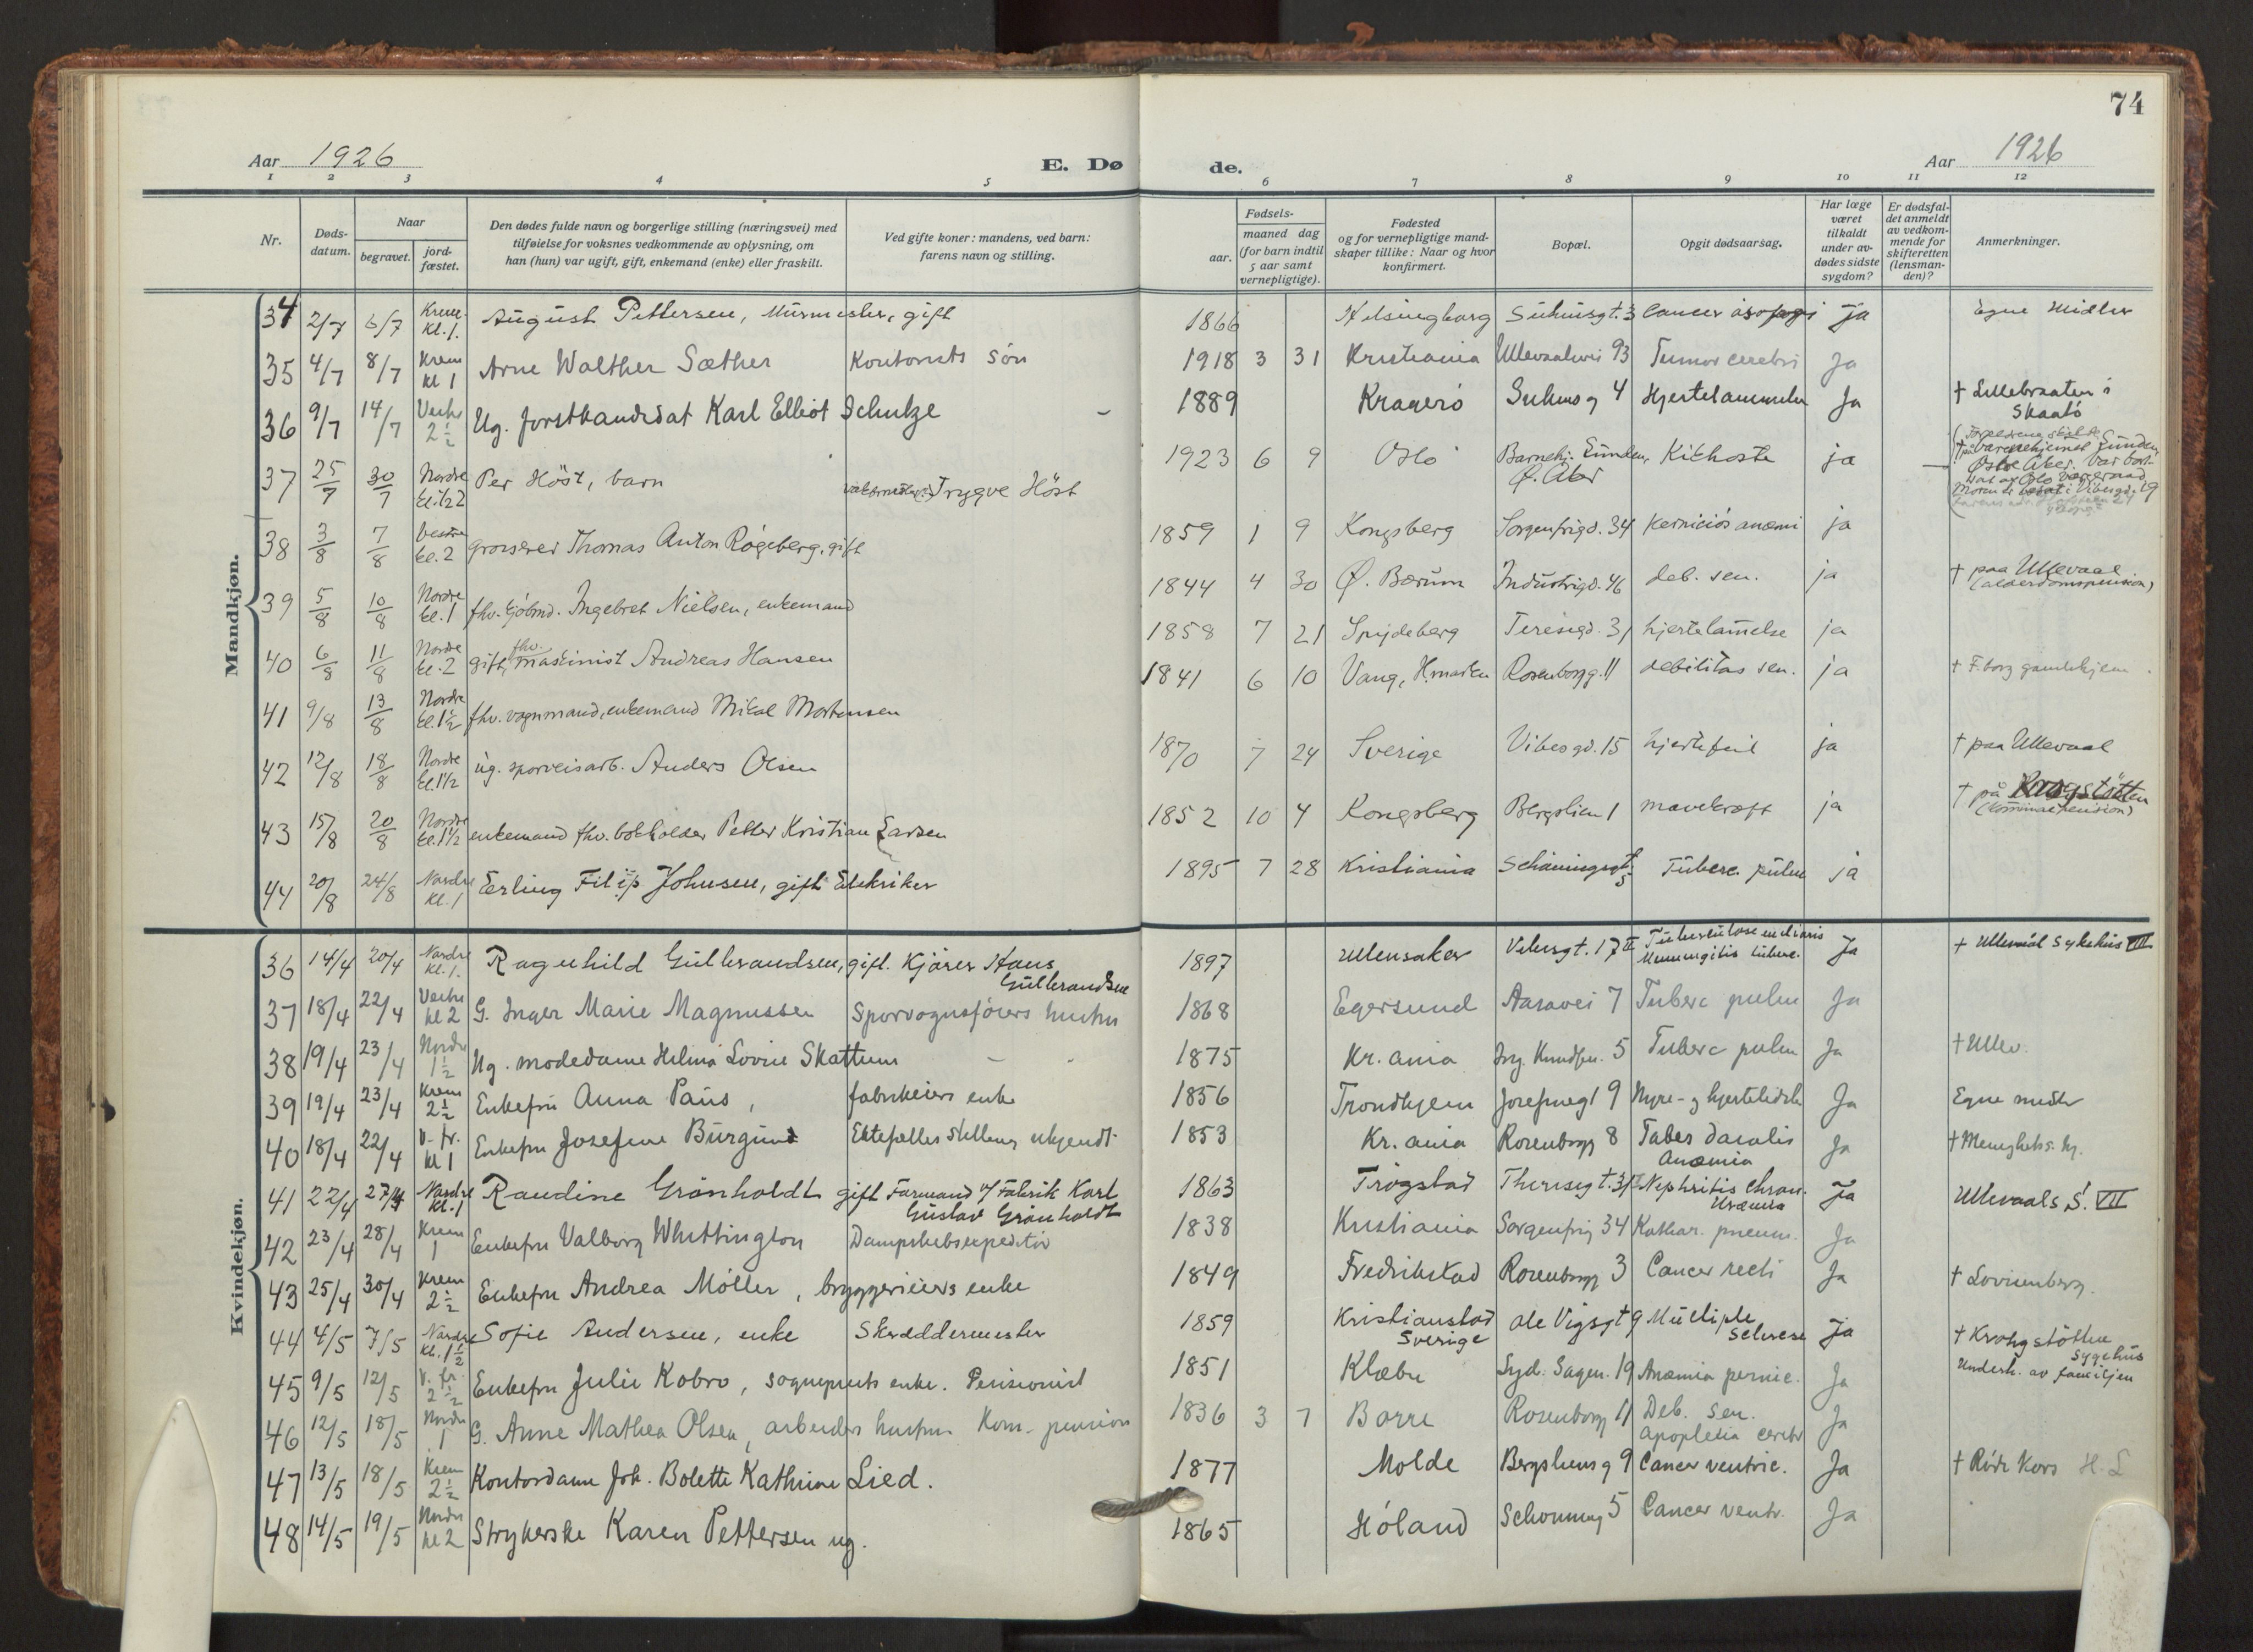 74
Aar 1926
E. Dø de.
Aar 1926
1 2 3 4 5 6 7 8 9 10 11 12
Nr.
Døds-datum.
Naar
begravet.
jord-fæstet.
Den dødes fulde navn og borgerlige stilling (næringsvei) med
tilføielse for voksnes vedkommende av oplysning, om
han (hun) var ugift, gift, enkemand (enke) eller fraskilt.
Ved gifte koner: mandens, ved barn:
farens navn og stilling.
Fødsels-
aar.
maaned dag
(for barn indtil
5 aar samt
vernepligtige).
Fødested
og for vernepligtige mand-
skaper tillike: Naar og hvor
konfirmert.
Bopæl.
Opgit dødsaarsag.
Har læge
været
tilkaldt
under av-
dødes sidste
sygdom?
Er dødsfal-
det anmeldt
av vedkom-
mende for
skifteretten
(lensman-
den)?
Anmerkninger.
Mandkjøn.
34 2/7 6/7 Krem. kl. 1. August Pettersen, Murmester, gift 1866 Helsingborg Suhmsgt. 3 Cancer ja Egne Midler
35 4/7 8/7 Krem kl 1 Arne Walther Sæther Kontorists søn 1918 3 31 Kristiania Ullevaalsvei 93 Tumor cerebri Ja
36 9/7 14/7 2 1/2 Ug. forstkandidat Karl Elliot Schulze - 1889 Kragerø Suhmsg 4 Hjertelammelse Ja † Lillebraaten i Skaatø
37 25/7 30/7 Nordre Per Höst, barn Trygve Höst 1923 6 9 Oslo Barnehj. Linden, Ø. Aker Kikhoste ja
38 3/8 7/8 Vestre kl. 2 grosserer Thomas Anton Rógeberg, gift 1859 1 9 Kongsberg Sorgenfrigd. 34 Perniciós anæmi ja
39 5/8 10/8 Nordre kl. 1 fhv. kjöbmd. Ingebret Nielsen, enkemand 1844 4 30 Ø. Bærum Industrigd. 46 deb. sen. ja † paa Ullevaal (alderdomspension)
40 6/8 11/8 Nordre kl. 2 gift, fhv. maskinist Andreas Hansen 1858 7 21 Spydeberg Teresegd. 31 hjertelam̄else ja
41 9/8 13/8 Nordre kl. 1 1/2 fhv. vognmand, enkemand Mikal Mortensen 1841 6 10 Vang, H.marken Rosenborgg. 11 debilitas sen. ja † F.borg gamlehjem
42 12/8 18/8 Nordre kl. 1 1/2 ug. sporveisarb. Anders Olsen 1870 7 24 Sverige Vibesgd. 15 hjertefeil ja † paa Ullevaal
43 15/8 20/8 Nordre kl. 1 1/2 enkemand fhv. bokholder Petter Kristian Larsen 1852 10 4 Kongsberg Bergslien 1 mavekræft ja † på Krogstötten
44 20/8 24/8 Nordre kl. 1 Erling Filip Johnsen, gift Elektriker 1895 7 28 Kristiania Schöningsgt. 5 Tuberc. pulm ja
Kvindekjøn.
36 14/4 20/4 Nordre kl. 1. Ragnhild Gulbrandsen, gift. Kjører Hans Gulbrandsen 1897 Ullensaker Vibesgt. 17 II Tuberculose miliaris Meningitis tuberc. Ja † Ullevaal Sykehus VIII
37 18/4 22/4 Vestre kl 2 G. Inger Marie Magnussen Sporvognsførers hustru 1868 Egersund Aasavei 7 Tuberc pulm Ja
38 19/4 23/4 Nordre 1 1/2 Ug. modedame Helma Lovise Skattum - 1875 Kr.ania Jørg. Knudsen. 5 Tuberc pulm Ja † Ullev.
39 19/4 23/4 Krem 2 1/2 Enkefru Anna Paus, fabrikeiers enke 1856 Trondhjem Josefinegt 9 Nyre- og hjertelidelse Ja Egne midler
40 18/4 22/4 V. fr. kl 1 Enkefru Josefine Burgund Ektefelles stilling ukjendt 1853 Kr.ania Rosenborgg 8 Tabes dorsalis Anæmia Ja † Menighets. hj.
41 22/4 27/4 Nordre kl. 1 Raudine Grönholdt gift Formand v/ Fabrik Karl Gustav Grönholdt 1863 Trögstad Theresegt. 31 Nephritis chron. Uræmia Ja Ullevaals S. VII
42 23/4 28/4 Krem 1 Enkefru Valborg Whittington Dampskibsexpeditør 1838 Kristiania Sorgenfrig 34 Kathar. pneum. Ja
43 25/4 30/4 Krem 2 1/2 Enkefru Andrea Möller, bryggerieiers enke 1849 Fredrikstad Rosenborgg 3 Cancer recti Ja † Lovisenberg.
44 4/5 7/5 Nordre kl. 1 1/2 Sofie Andersen, enke Skræddermester 1859 Kristianstad Sverige Ole Vigsgt 9 Multiple Sclerose Ja † Krohgstöttens Sygehus
45 9/5 12/5 V. fr. 2 1/2 Enkefru Julie Kobro, sogneprests enke. Pensionist 1851 Klæbu Syd. Sagen. 19 Anæmia pernic. Ja Underh. av familjen
46 12/5 18/5 Nordre 1 G. Anne Mathea Olsen, arbeiders hustru Kom. pension 1836 3 7 Borre Rosenborgg 11 Deb. sen. Apoplexia cerebr Ja
47 13/5 18/5 Krem 2 1/2 Kontordame Joh. Bolette Kathrine Lied. 1877 Molde Bergsliens g 9 Cancer ventric. Ja † Røde Kors H. L
48 14/5 19/5 Nordre kl 2 Strykerske Karen Pettersen ug. 1865 Høland Schøningg 5 Cancer ventr. Ja